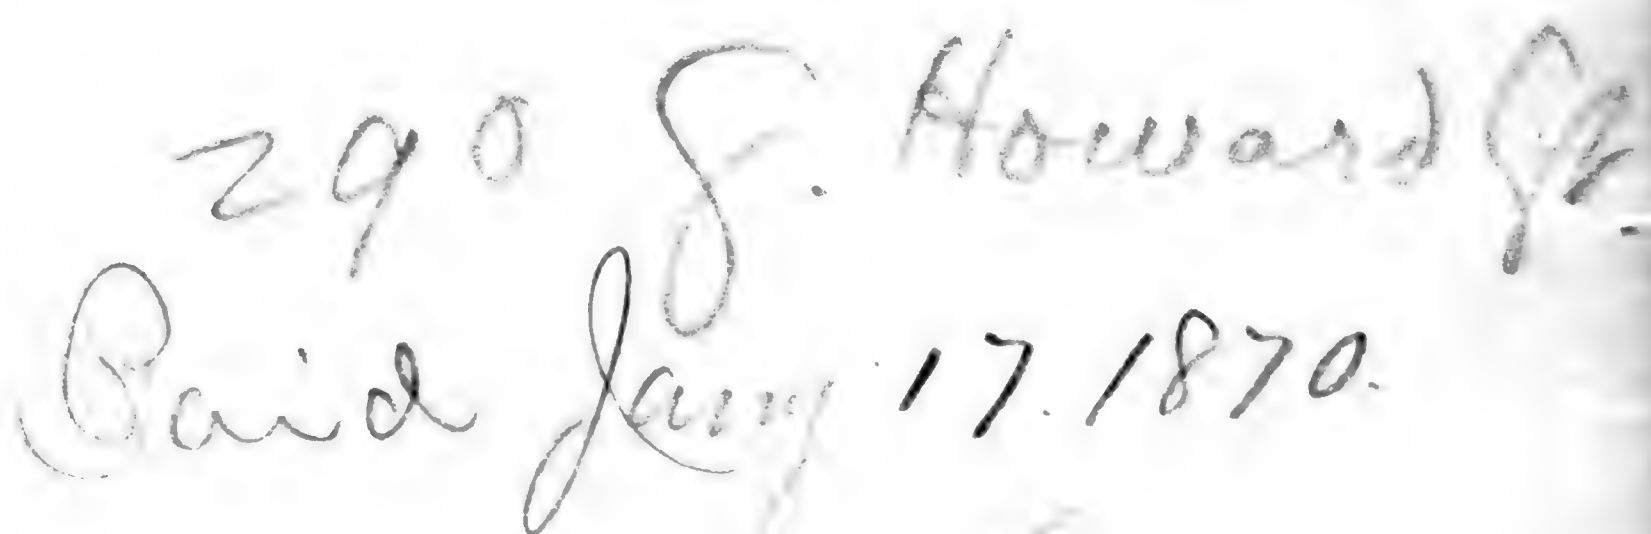 290 F. Howard Jr.
Paid Jany 17. 1870.